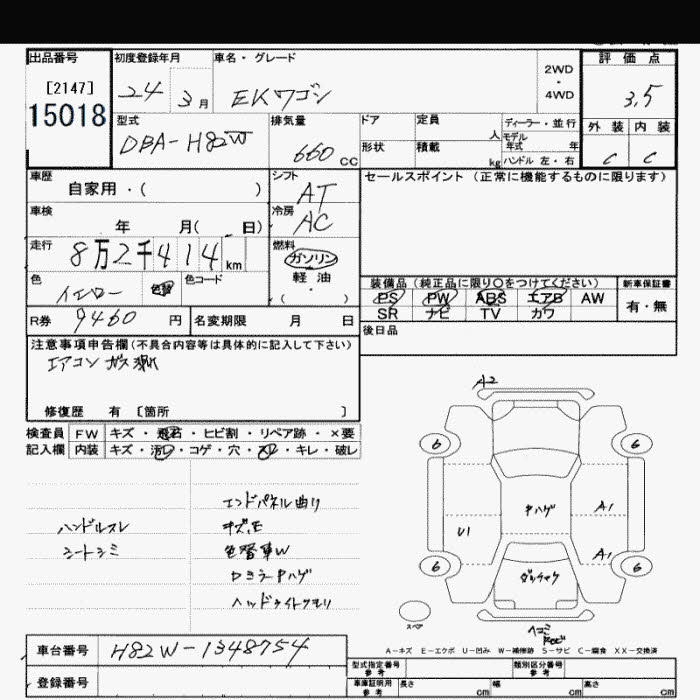 出品番号
[2147]
15018
初度登録年月
24 3月
車名・グレード
EKワゴン
2WD
・
4WD
評価点
3.5
外装 内装
C C
型式
DBA-H82W
排気量
660 CC
ドア
形状
定員
人
積載
kg
ディーラー・並行
モデル
年式 年
ハンドル 左・右
車歴
自家用・( )
シフト
AT
セールスポイント (正常に機能するものに限ります)
車検
年 月( 日)
冷房
AC
走行
8万2千414 km
燃料
ガソリン
軽油
・
( )
色
イエロー
色替
色コード
装備品 (純正品に限り○をつけてください)
PS PW ABS エアB AW
SR ナビ TV カワ
新車保証書
有・無
R券 9460 円
名変期限 月 日
後日品
注意事項申告欄(不具合内容等は具体的に記入して下さい)
エアコン ガス漏れ
修復歴 有 〔箇所 〕
検査員
記入欄
FW キズ・飛石・ヒビ割・リペア跡・×要
内装 キズ・汚レ・コゲ・穴・スレ・キレ・破レ
エンドパネル曲り
ハンドルスレ
キズ、E
シートシミ
色替車W
ヘッドライトクモリ
A2
6 6
ヤハゲ
A1
U1
A1
6 6
スペア
ヘコミ
A-キズ E-エクボ U-凹み W-補修跡 S-サビ C-腐食 XX-交換済
車台番号
H82W-1348754
登録番号
型式指定番号
参考
類別区分番号
参考
車庫証明用
参考
長さ cm 幅 cm 高さ cm